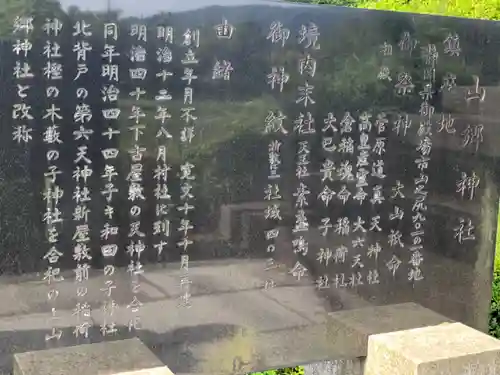 山郷神社
鎮座地
静岡県御殿場市山之尻九〇二の一番地
御祭神 大山祇命
相殿
菅原道真 天神社
高皇産霊命 大六天社
倉稲魂命 稲荷社
大己貴命 子神社
境内末社 天王社 素盞鳴命
御神紋
社域四〇三
由緒
創立年月不詳 寛文十年十月
明治十二年八月村社に列す
明治四十年下古屋敷の天神社を合祀
同年明治四十四年子キ和田の子神社
北背戸の第六天神社新屋敷前の稲荷
神社樫の木藪の子神社を合祀し山
郷神社と改称